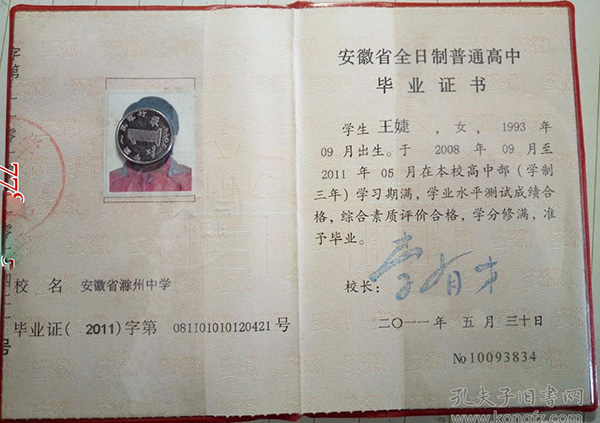 校 名 安徽省滁州中学
毕业证( 2011)字第 081101010120421 号
安徽省全日制普通高中
毕业证书
学生 王婕 , 女, 1993 年
09 月出生。于 2008 年 09 月至
2011 年 05 月在本校高中部(学制
三年)学习期满,学业水平测试成绩合
格,综合素质评价合格,学分修满,准
予毕业。
校长: 李有才
二〇一一年 五 月 三十日
No 10093834
孔夫子旧书网
www.kongfz.com